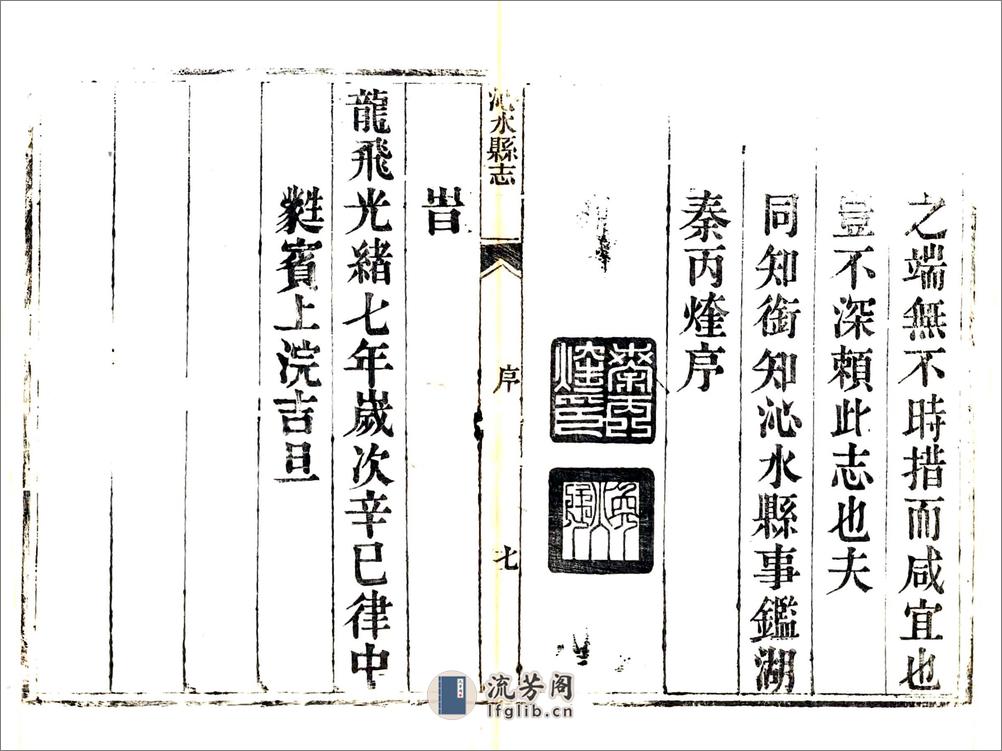 之端無不時措而咸宜也
豈不深賴此志也夫
同知銜知沁水縣事鑑湖
秦丙煃序
秦丙煃印
沁水縣志
序
七
旹
龍飛光緒七年歲次辛巳律中
蕤賓上浣吉旦
流芳阁
lfglib.cn